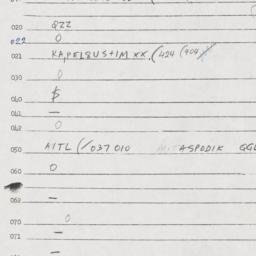 020 QZZ
022 0
021 KAPELBUSTIM XX. (424 (404
030 0
040 $
041 —
042 0
050 AITL (/037 010 ASPODIK GGL
060 0
—
069 —
070 0
071 —
—